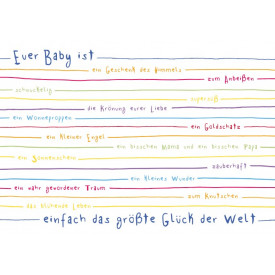 Euer Baby ist
ein Geschenk des Himmels
zum Anbeißen
schnuckelig
supersüß
die Krönung eurer Liebe
ein Wonneproppen
ein Goldschatz
ein kleiner Engel
ein bisschen Mama und ein bisschen Papa
ein Sonnenschein
zauberhaft
ein kleines Wunder
ein wahr gewordener Traum
zum Knutschen
das blühende Leben
einfach das größte Glück der Welt